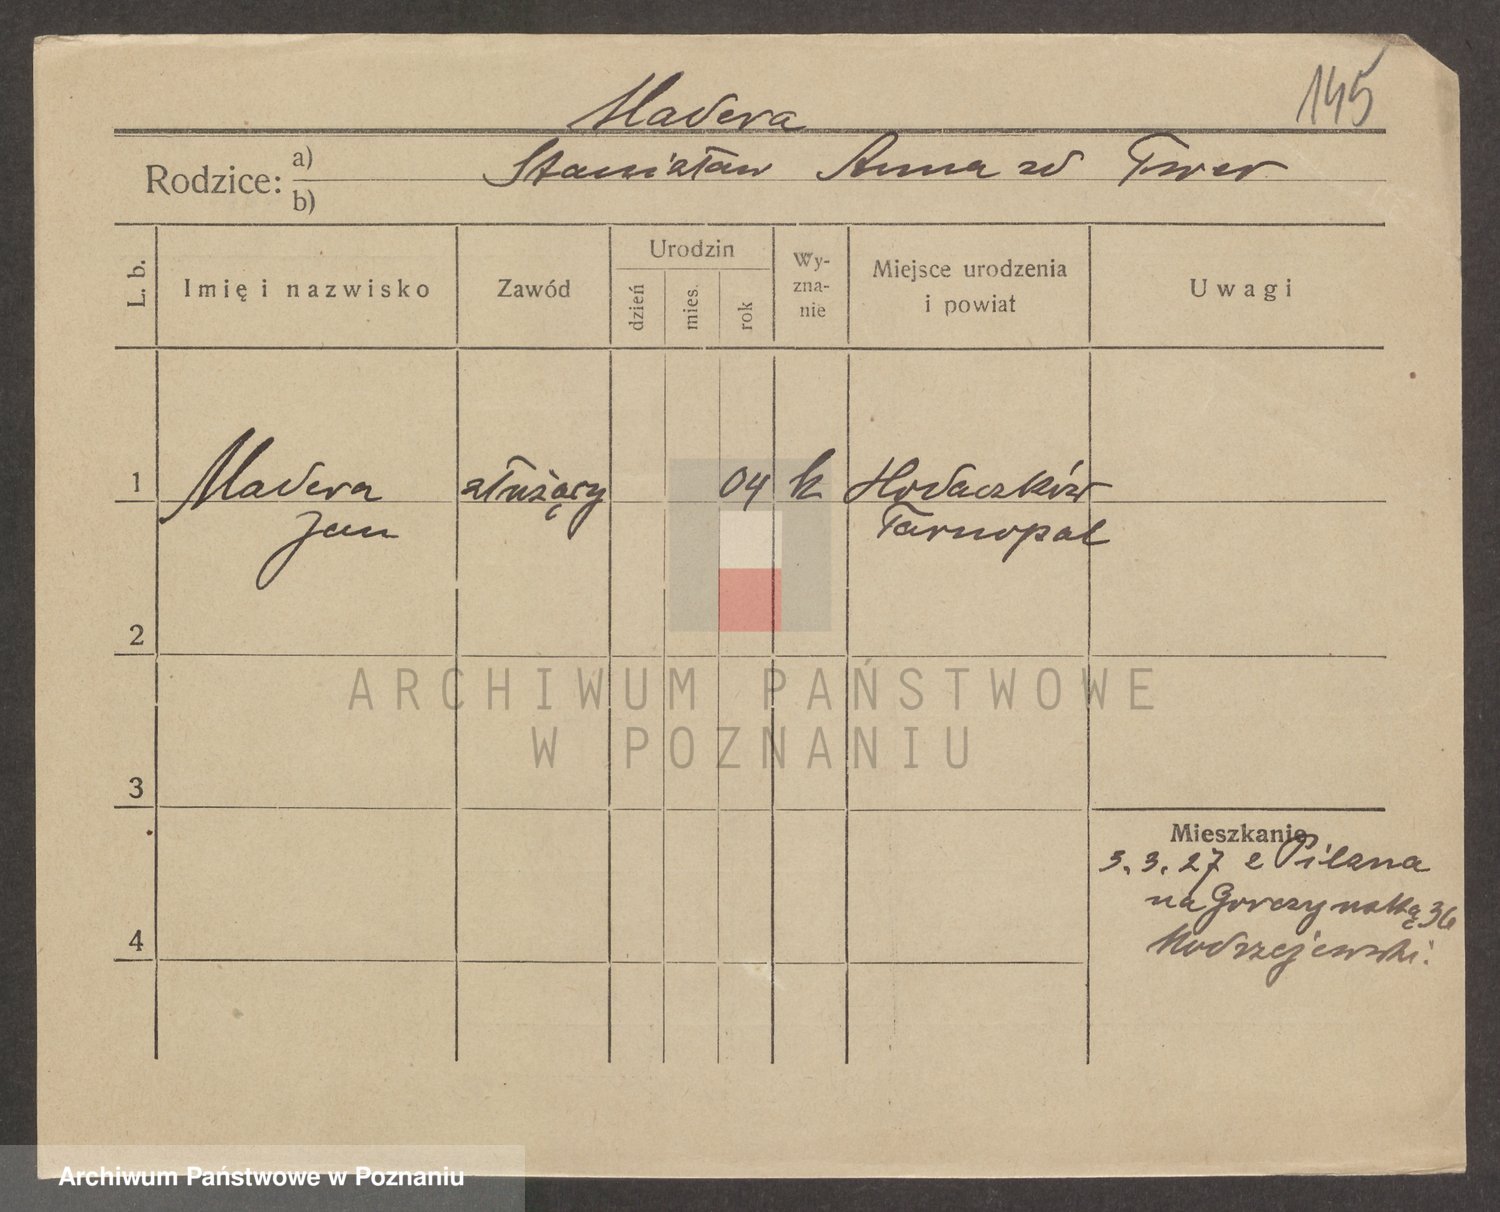 145
Madera
Rodzice: a) b)
Stanisław Anna zd Twer
L. b.
Imię i nazwisko
Zawód
Urodzin
dzień
mies.
rok
Wy-
zna-
nie
Miejsce urodzenia
i powiat
Uwagi
1
Madera
Jan
służący
04
k
Hodaczków
Tarnopol
2
3
4
Mieszkanie
3. 3. 27 z Pilzna
na Gorczyńską 36
Modrzejewski.
ARCHIWUM PAŃSTWOWE
W POZNANIU
Archiwum Państwowe w Poznaniu